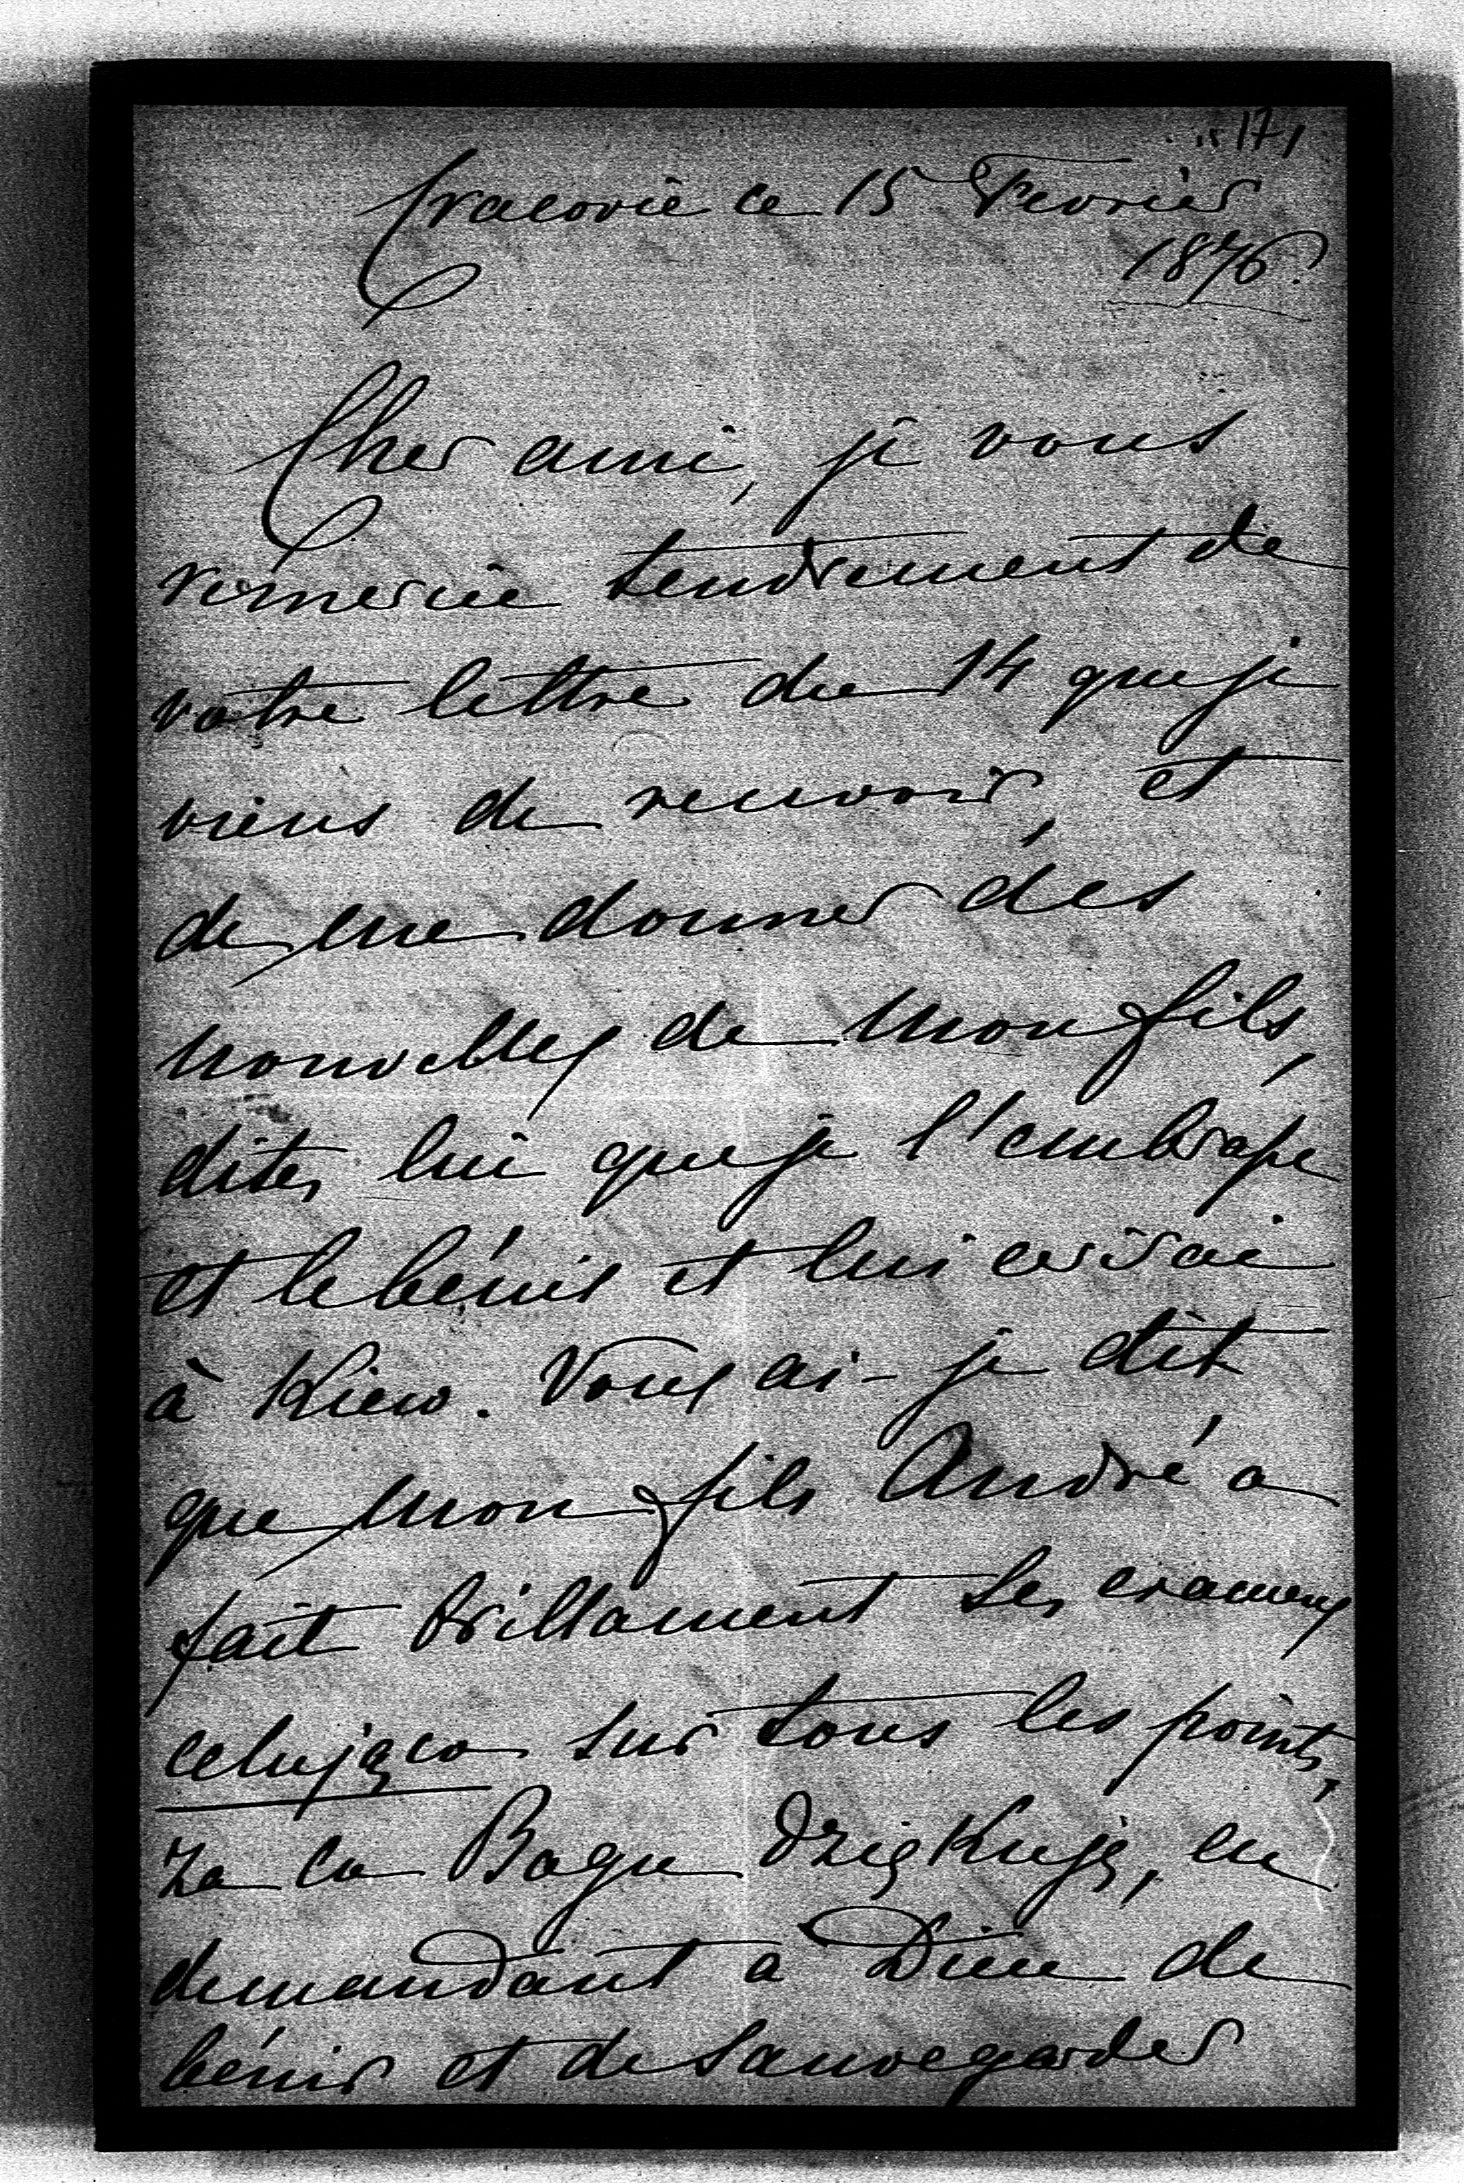 171
Cracovie ce 15 Fevrier
1876.
Cher ami, je vous
remercie tendrement de
votre lettre du 14 que je
viens de recevoir, et
de me donner des
nouvelles de mon fils,
dites lui que je l'embrasse
et le bénis et lui écrirai
à Kiew. Vous ai-je dit
que mon fils André a
fait brillament ses examens
celująco sur tous les points,
za co Bogu dziękuję, en
demandant a Dieu de
bénir et de sauvegarder